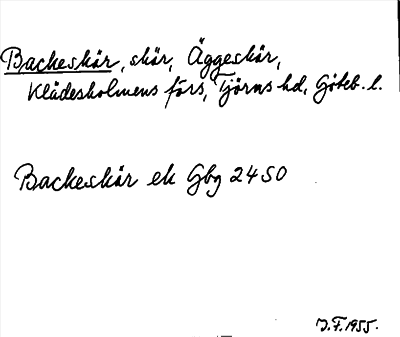 Backeskär, skär, Äggeskär,
Klädesholmens förs, Tjörns hd, Göteb. l.
Backeskär ek Gbg 24 SO
J.F. 1955.